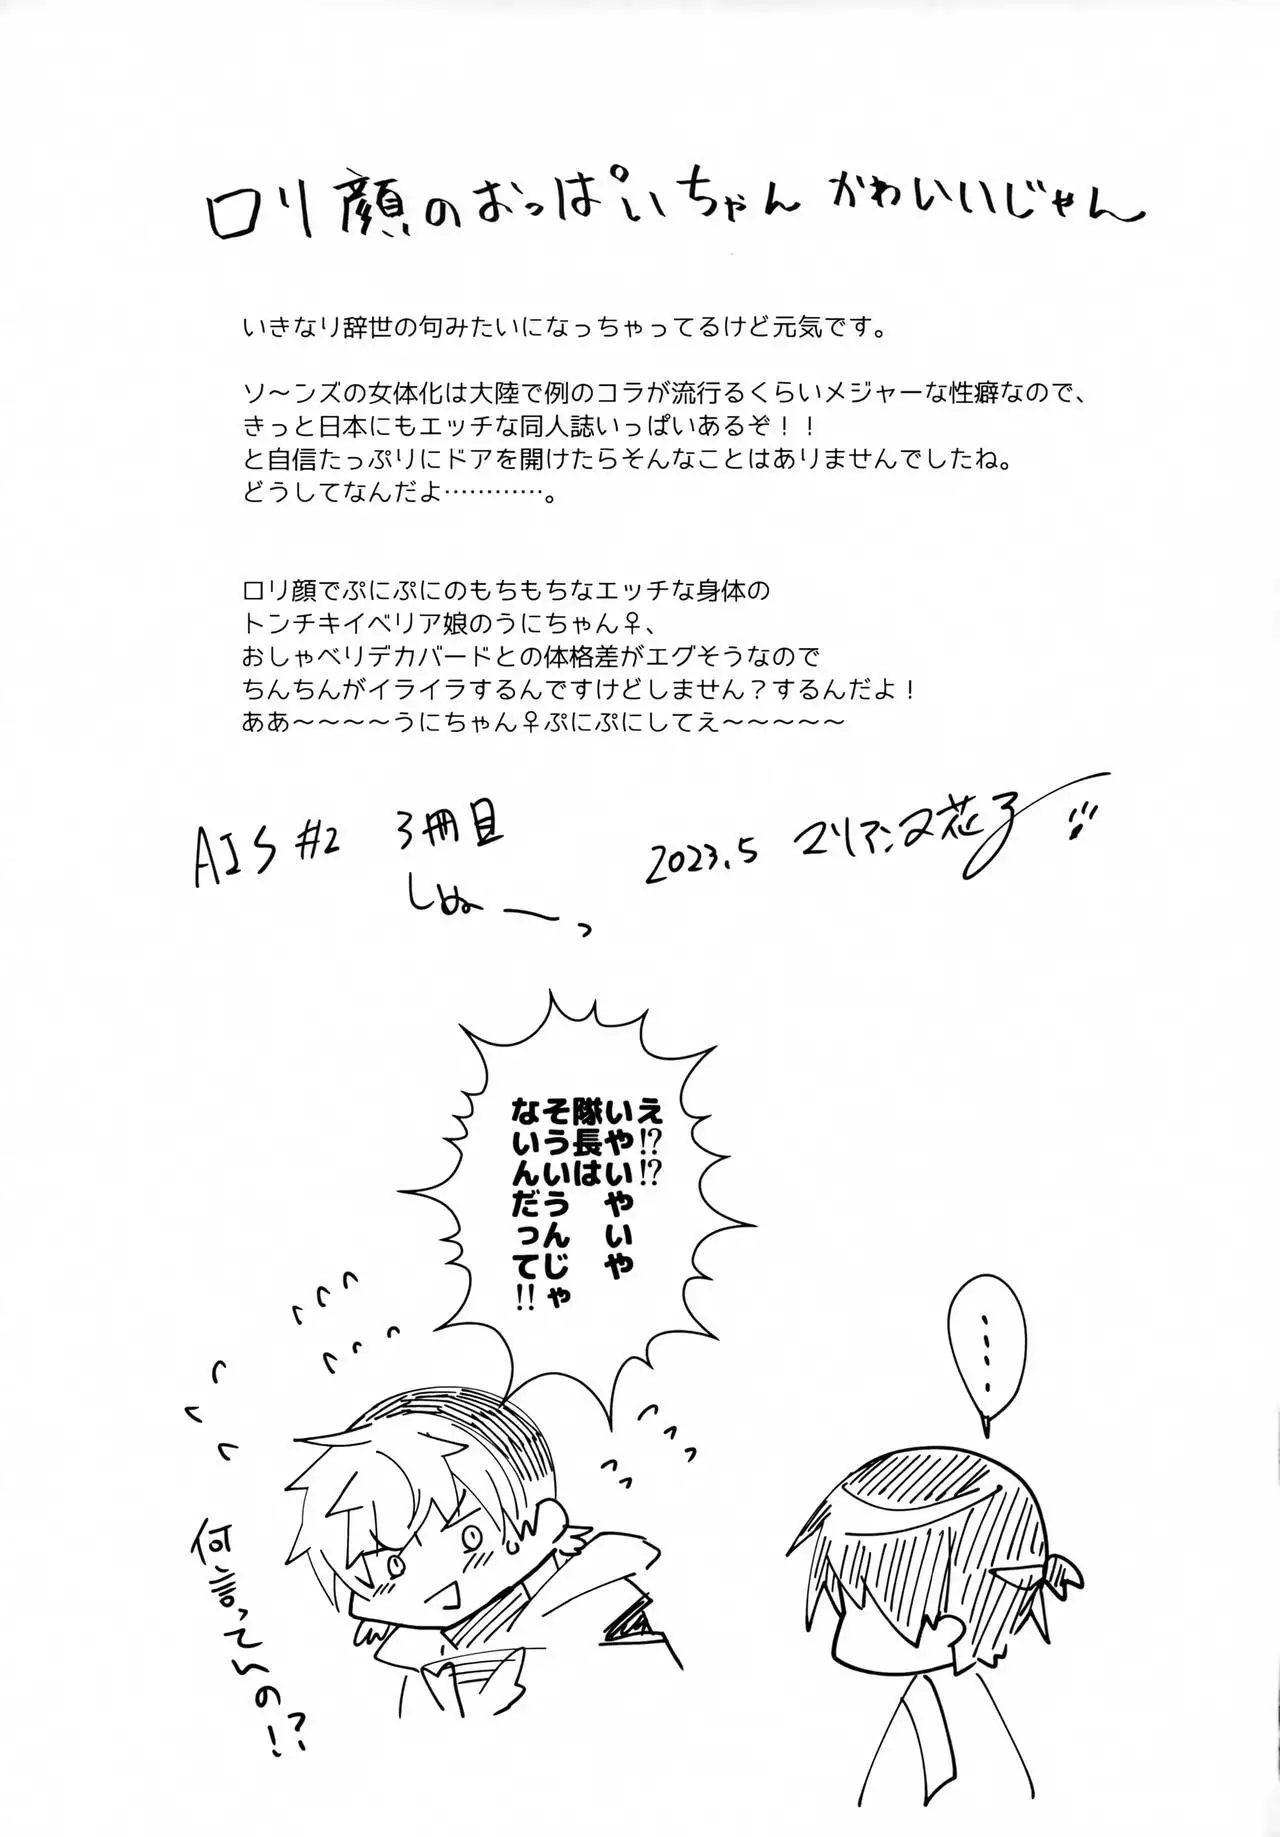 ロリ顔のおっぱいちゃん かわいいじゃん
いきなり辞世の句みたいになっちゃってるけど元気です。
ソ～ンズの女体化は大陸で例のコラが流行るくらいメジャーな性癖なので、
きっと日本にもエッチな同人誌いっぱいあるぞ！！
と自信たっぷりにドアを開けたらそんなことはありませんでしたね。
どうしてなんだよ…………。
ロリ顔でぷにぷにのもちもちなエッチな身体の
トンチキイベリア娘のうにちゃん♀、
おしゃべりデカバードとの体格差がエグそうなので
ちんちんがイライラするんですけどしません？するんだよ！
ああ～～～～うにちゃん♀ぷにぷにしてえ～～～～～
AJS #2 3冊目
しぬーっ
2023.5 マリアンヌ花子
え！？！？
いやいやいや
隊長は
そういうんじゃ
ないんだって！！
‥‥
何言っていの！？